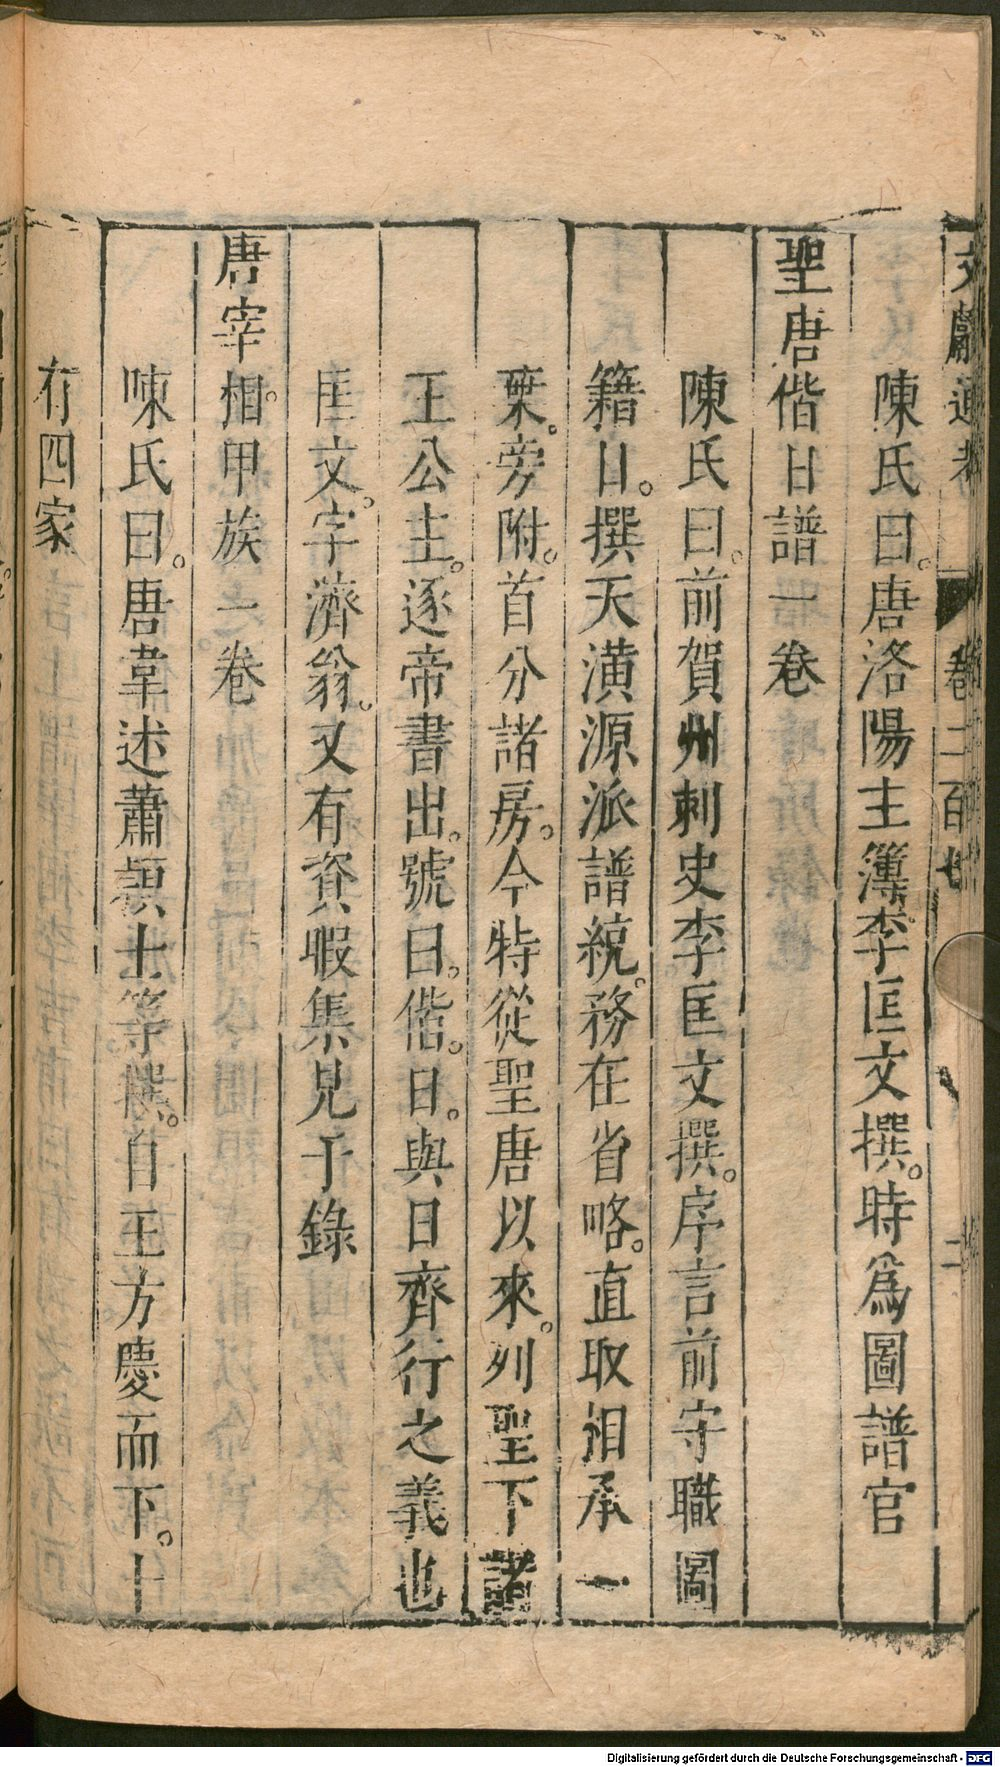 文獻通考 卷二百七 二
陳氏曰。唐洛陽主簿李匡文撰。時爲圖譜官
聖唐偕日譜一卷
陳氏曰。前賀州刺史李匡文撰。序言前守職圖
籍日。撰天潢源派譜統。務在省略。直取相承一
葉。旁附。首分諸房。今特從聖唐以來。列聖下諸
王公主。逐帝書出。號曰。偕。日。與日齊行之義也
匡文。字濟翁。又有資暇集見于錄
唐宰相。甲族一卷
陳氏曰。唐韋述蕭穎士等撰。自王方慶而下。十
有四家
Digitalisierung gefördert durch die Deutsche Forschungsgemeinschaft - DFG